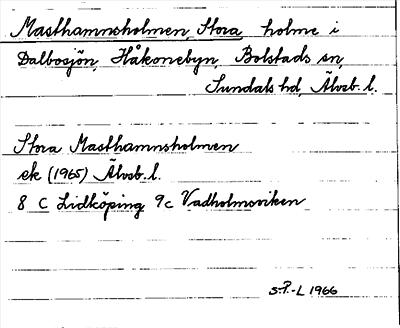 Masthamnsholmen, Stora, holme i
Dalbosjön, Håkonebyn, Bolstads sn,
Sundals hd, Älvsb. l.
Stora Masthamnsholmen
ek (1965) Älvsb. l.
8 C Lidköping 9c Vadholmsviken
S.P.-L 1966